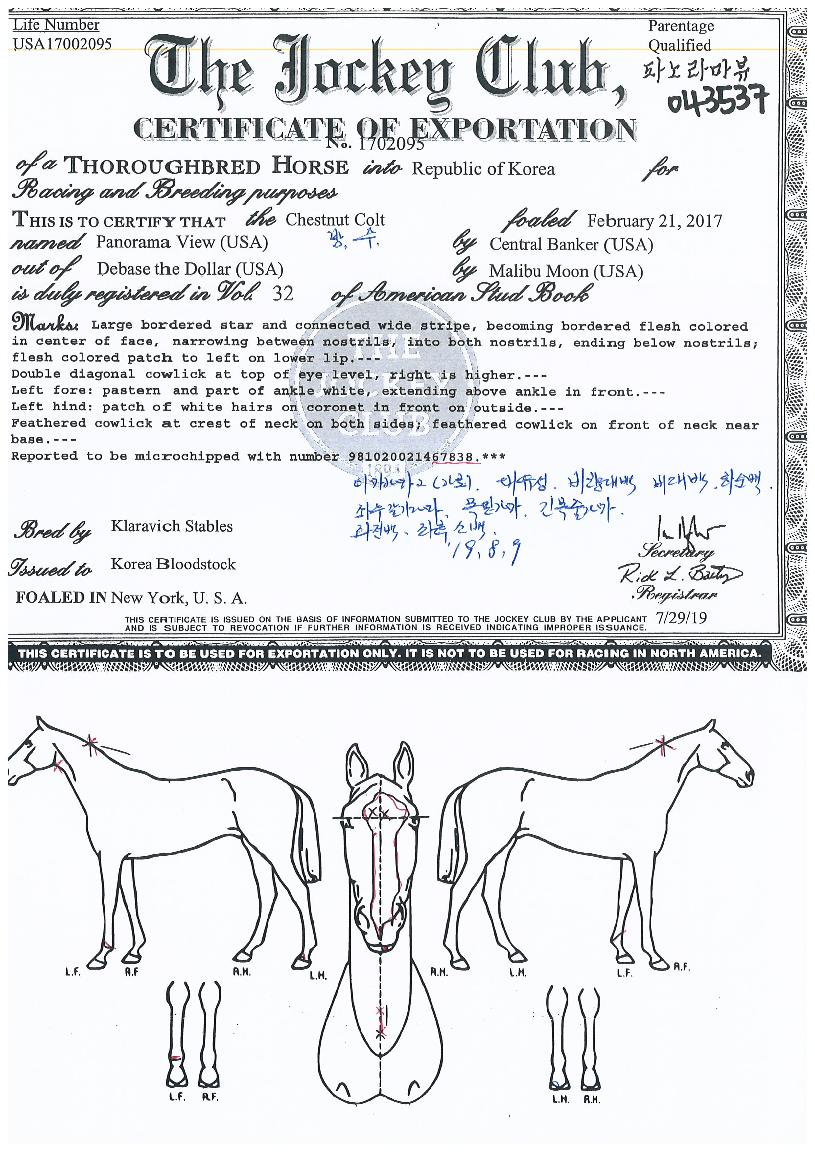 Life Number
USA17002095
Parentage
Qualified
파노라마뷰
043537
The Jockey Club,
CERTIFICATE OF EXPORTATION
No. 1702095
of a THOROUGHBRED HORSE into Republic of Korea for
Racing and Breeding purposes
THIS IS TO CERTIFY THAT the Chestnut Colt foaled February 21, 2017
named Panorama View (USA) by Central Banker (USA)
out of Debase the Dollar (USA) by Malibu Moon (USA)
is duly registered in Vol. 32 of American Stud Book
Marks: Large bordered star and connected wide stripe, becoming bordered flesh colored
in center of face, narrowing between nostrils, into both nostrils, ending below nostrils;
flesh colored patch to left on lower lip.---
Double diagonal cowlick at top of eye level, right is higher.---
Left fore: pastern and part of ankle white, extending above ankle in front.---
Left hind: patch of white hairs on coronet in front on outside.---
Feathered cowlick at crest of neck on both sides; feathered cowlick on front of neck near
base.---
Reported to be microchipped with number 981020021467838.***
THE
JOCKEY
CLUB
1894
'19, 8, 9
Bred by Klaravich Stables
Issued to Korea Bloodstock
FOALED IN New York, U. S. A.
Secretary
Registrar
THIS CERTIFICATE IS ISSUED ON THE BASIS OF INFORMATION SUBMITTED TO THE JOCKEY CLUB BY THE APPLICANT 7/29/19
AND IS SUBJECT TO REVOCATION IF FURTHER INFORMATION IS RECEIVED INDICATING IMPROPER ISSUANCE.
THIS CERTIFICATE IS TO BE USED FOR EXPORTATION ONLY. IT IS NOT TO BE USED FOR RACING IN NORTH AMERICA.
L.F. R.F R.H. L.H. R.H. L.H. L.F. R.F.
L.F. R.F. L.H. R.H.